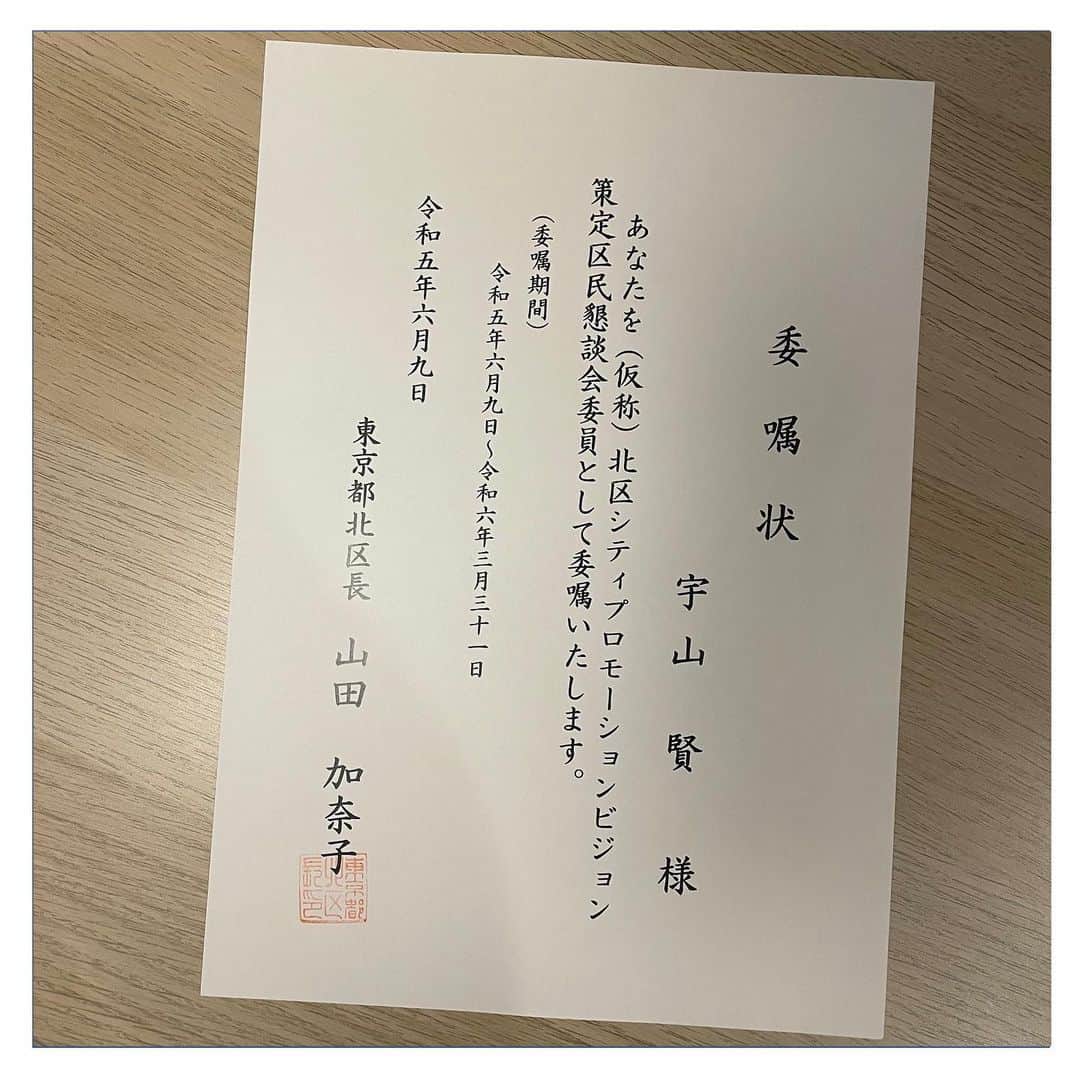 委嘱状
宇山賢様
あなたを（仮称）北区シティプロモーションビジョン
策定区民懇談会委員として委嘱いたします。
（委嘱期間）
令和五年六月九日～令和六年三月三十一日
令和五年六月九日
東京都北区長 山田 加奈子
東京都
北区
長印